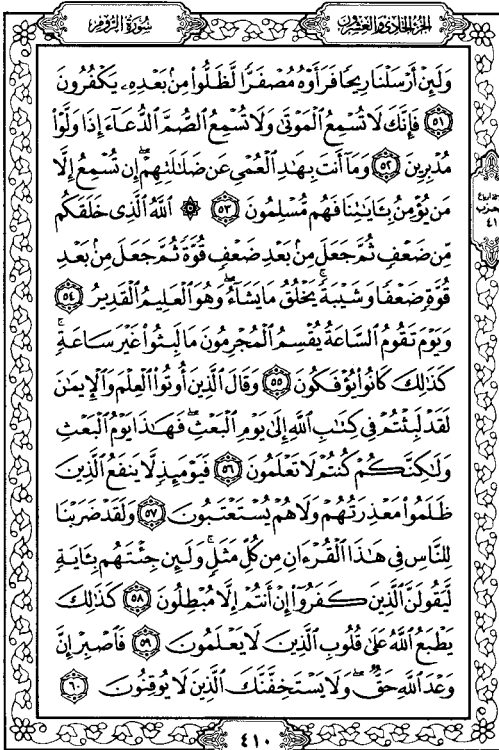 سُورَةُ الرُّومِ
الجُزءُ الحَادِي وَالعِشْرُونَ
وَلَئِنْ أَرْسَلْنَا رِيحًا فَرَأَوْهُ مُصْفَرًّا لَّظَلُّوا۟ مِنۢ بَعْدِهِۦ يَكْفُرُونَ
٥١ فَإِنَّكَ لَا تُسْمِعُ ٱلْمَوْتَىٰ وَلَا تُسْمِعُ ٱلصُّمَّ ٱلدُّعَآءَ إِذَا وَلَّوْا۟
مُدْبِرِينَ ٥٢ وَمَآ أَنتَ بِهَٰدِ ٱلْعُمْىِ عَن ضَلَٰلَتِهِمْ ۖ إِن تُسْمِعُ إِلَّا
مَن يُؤْمِنُ بِـَٔايَٰتِنَا فَهُم مُّسْلِمُونَ ٥٣ ۞ ٱللَّهُ ٱلَّذِى خَلَقَكُم
مِّن ضَعْفٍ ثُمَّ جَعَلَ مِنۢ بَعْدِ ضَعْفٍ قُوَّةً ثُمَّ جَعَلَ مِنۢ بَعْدِ
قُوَّةٍ ضَعْفًا وَشَيْبَةً ۚ يَخْلُقُ مَا يَشَآءُ ۖ وَهُوَ ٱلْعَلِيمُ ٱلْقَدِيرُ ٥٤
وَيَوْمَ تَقُومُ ٱلسَّاعَةُ يُقْسِمُ ٱلْمُجْرِمُونَ مَا لَبِثُوا۟ غَيْرَ سَاعَةٍ ۚ
كَذَٰلِكَ كَانُوا۟ يُؤْفَكُونَ ٥٥ وَقَالَ ٱلَّذِينَ أُوتُوا۟ ٱلْعِلْمَ وَٱلْإِيمَٰنَ
لَقَدْ لَبِثْتُمْ فِى كِتَٰبِ ٱللَّهِ إِلَىٰ يَوْمِ ٱلْبَعْثِ ۖ فَهَٰذَا يَوْمُ ٱلْبَعْثِ
وَلَٰكِنَّكُمْ كُنتُمْ لَا تَعْلَمُونَ ٥٦ فَيَوْمَئِذٍ لَّا يَنفَعُ ٱلَّذِينَ
ظَلَمُوا۟ مَعْذِرَتُهُمْ وَلَا هُمْ يُسْتَعْتَبُونَ ٥٧ وَلَقَدْ ضَرَبْنَا
لِلنَّاسِ فِى هَٰذَا ٱلْقُرْءَانِ مِن كُلِّ مَثَلٍ ۚ وَلَئِن جِئْتَهُم بِـَٔايَةٍ
لَّيَقُولَنَّ ٱلَّذِينَ كَفَرُوٓا۟ إِنْ أَنتُمْ إِلَّا مُبْطِلُونَ ٥٨ كَذَٰلِكَ
يَطْبَعُ ٱللَّهُ عَلَىٰ قُلُوبِ ٱلَّذِينَ لَا يَعْلَمُونَ ٥٩ فَٱصْبِرْ إِنَّ
وَعْدَ ٱللَّهِ حَقٌّ ۖ وَلَا يَسْتَخِفَّنَّكَ ٱلَّذِينَ لَا يُوقِنُونَ ٦٠
الحزب
٤١
٤١٠